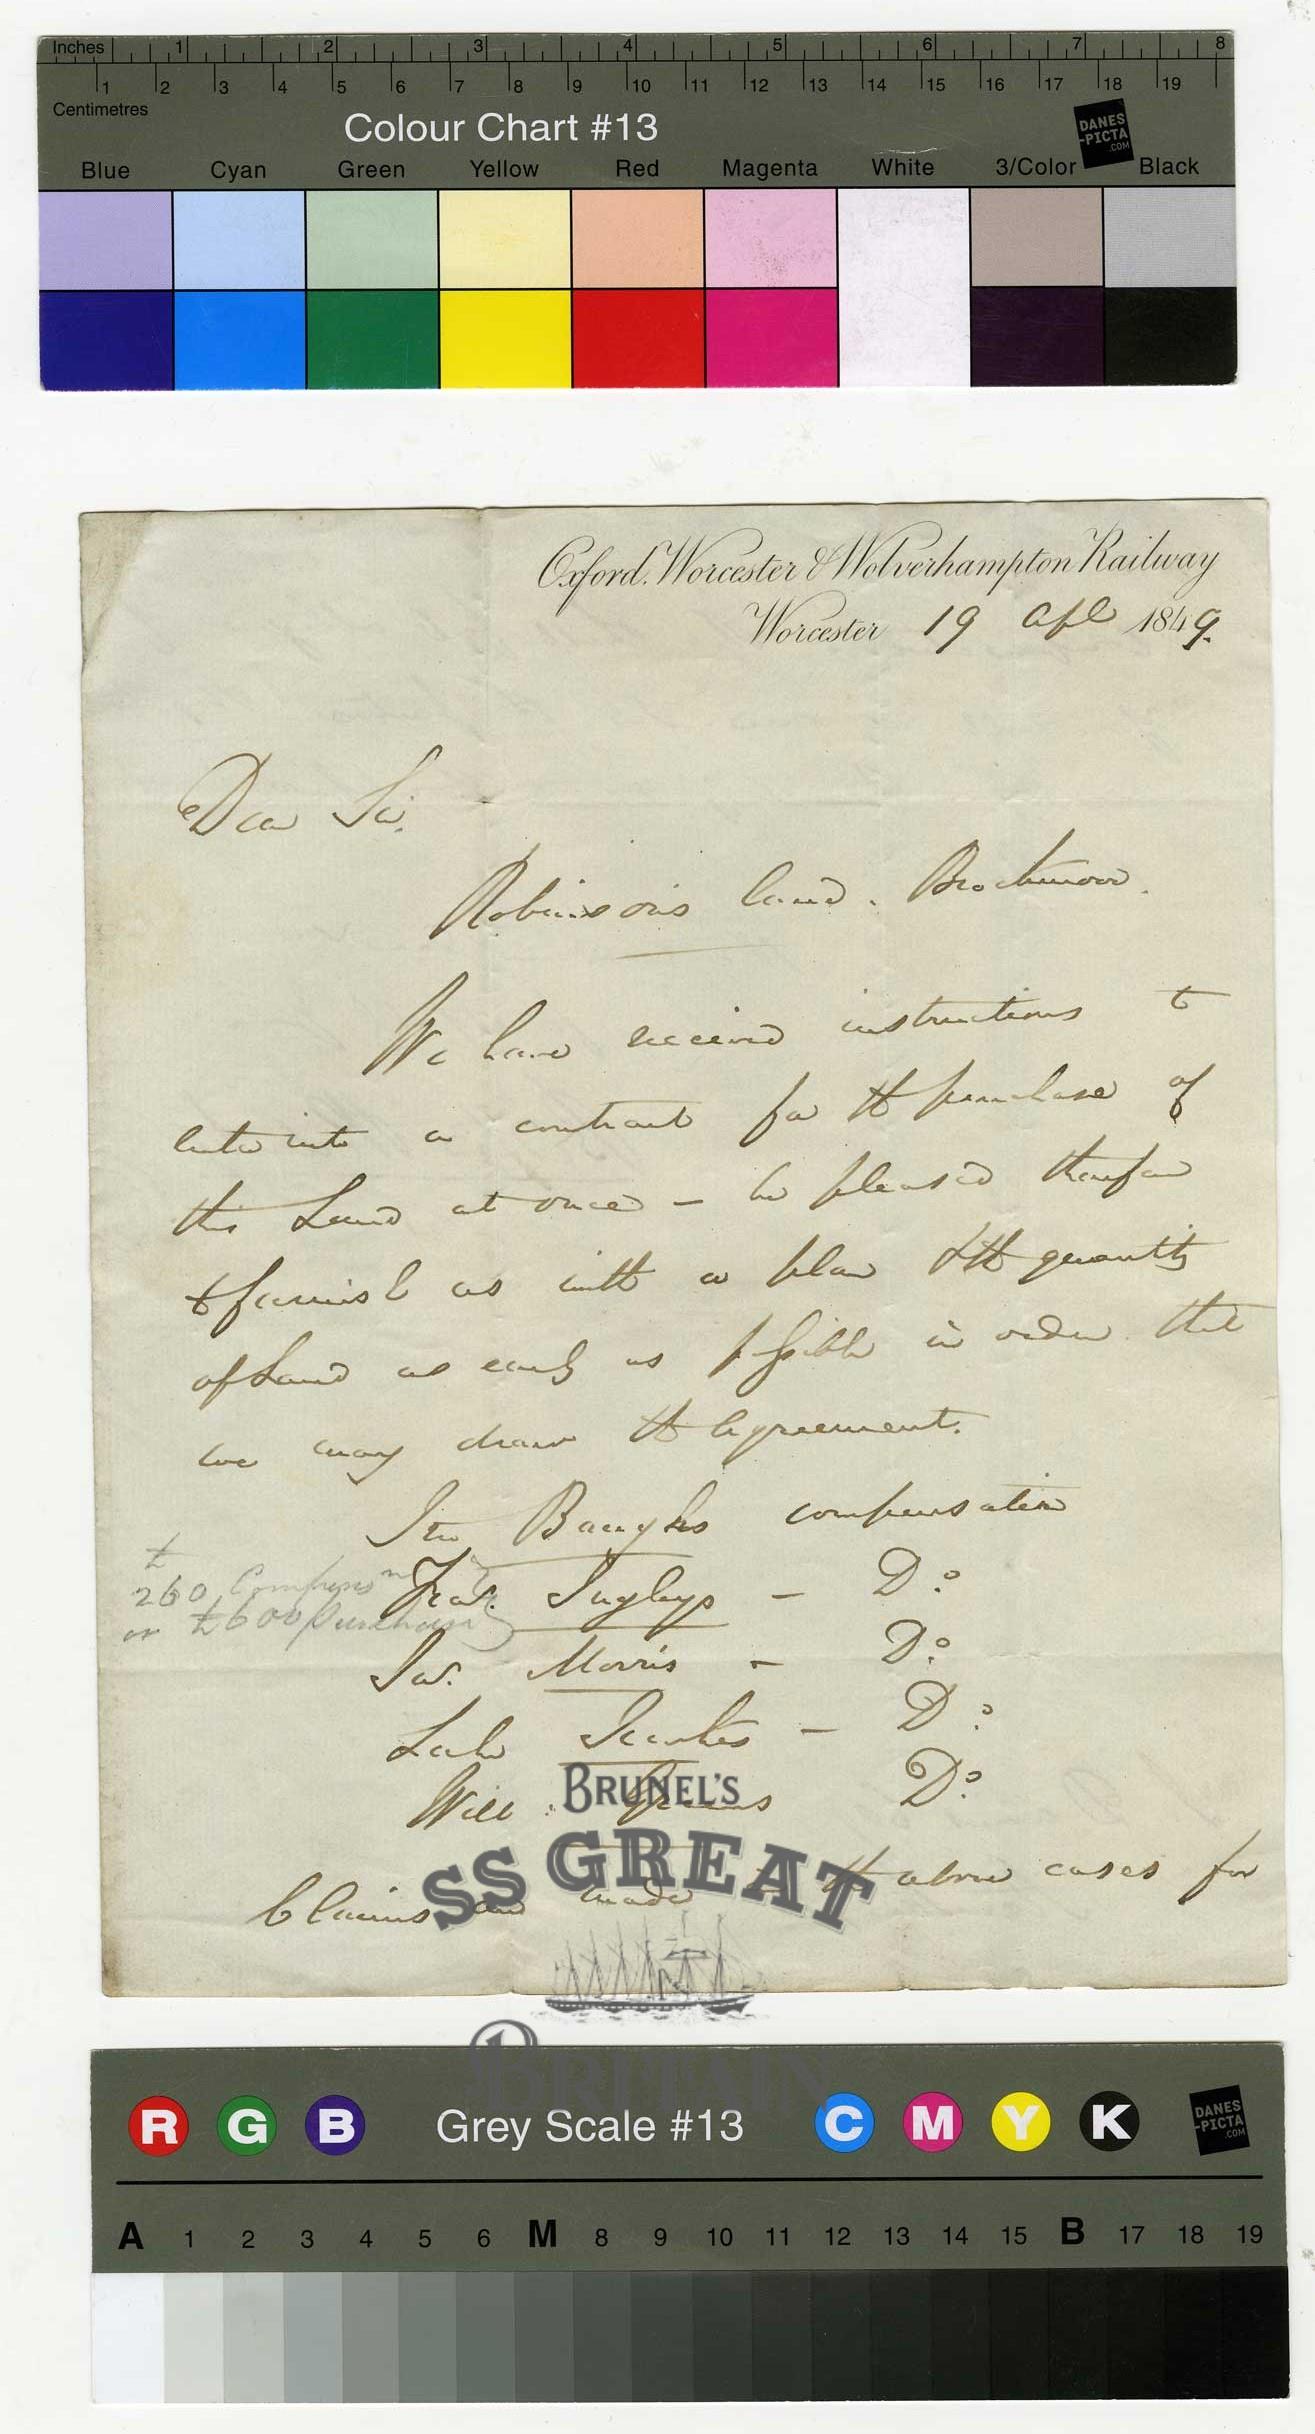 Inches 1 2 3 4 5 6 7 8
1 2 3 4 5 6 7 8 9 10 11 12 13 14 15 16 17 18 19
Centimetres
Colour Chart #13
DANES
-PICTA
.COM
Blue Cyan Green Yellow Red Magenta White 3/Color Black
Oxford, Worcester & Wolverhampton Railway
Worcester 19 Apl 1849.
Dear Sir,
Robinson's land. Brockmoor.
We have received instructions to
enter into a contract for the purchase of
this Land at once – be pleased therefore
to furnish us with a plan & the quantity
of Land as early as possible in order that
we may draw the Agreement.
Baughs compensation
£
260 Compensn
or £600 Purchase
Ingleys – Do
Jas. Morris – Do
Do
Will Do
Claims are made in the above cases for
BRUNEL'S
SS GREAT
BRITAIN
R G B Grey Scale #13 C M Y K
DANES
-PICTA
.COM
A 1 2 3 4 5 6 M 8 9 10 11 12 13 14 15 B 17 18 19